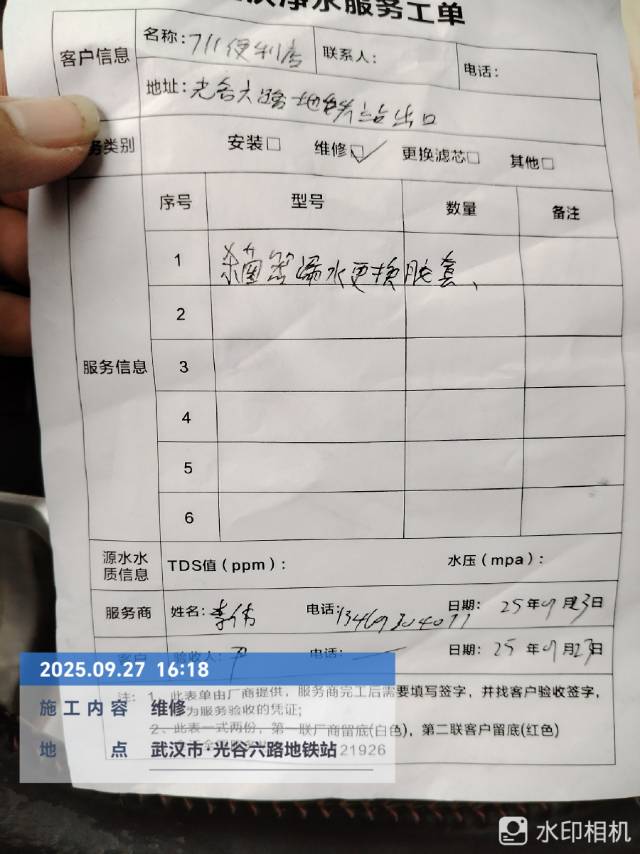 净水服务工单
客户信息
名称：711便利店
联系人：
电话：
地址：光谷六路地铁站出口
务类别
安装□ 维修☑ 更换滤芯□ 其他□
服务信息
序号 型号 数量 备注
1 杀菌器漏水更换胶套、
2
3
4
5
6
源水水
质信息
TDS值（ppm）： 水压（mpa）：
服务商 姓名：李伟 电话： 日期：25年9月23日
客户 验收人：尹 电话：— 日期：25年9月23日
注：1、此表单由厂商提供，服务商完工后需要填写签字，并找客户验收签字，
为服务验收的凭证；
2、此表一式两份，第一联厂商留底(白色)，第二联客户留底(红色)
21926
2025.09.27 16:18
施工内容 维修
地点 武汉市·光谷六路地铁站
水印相机